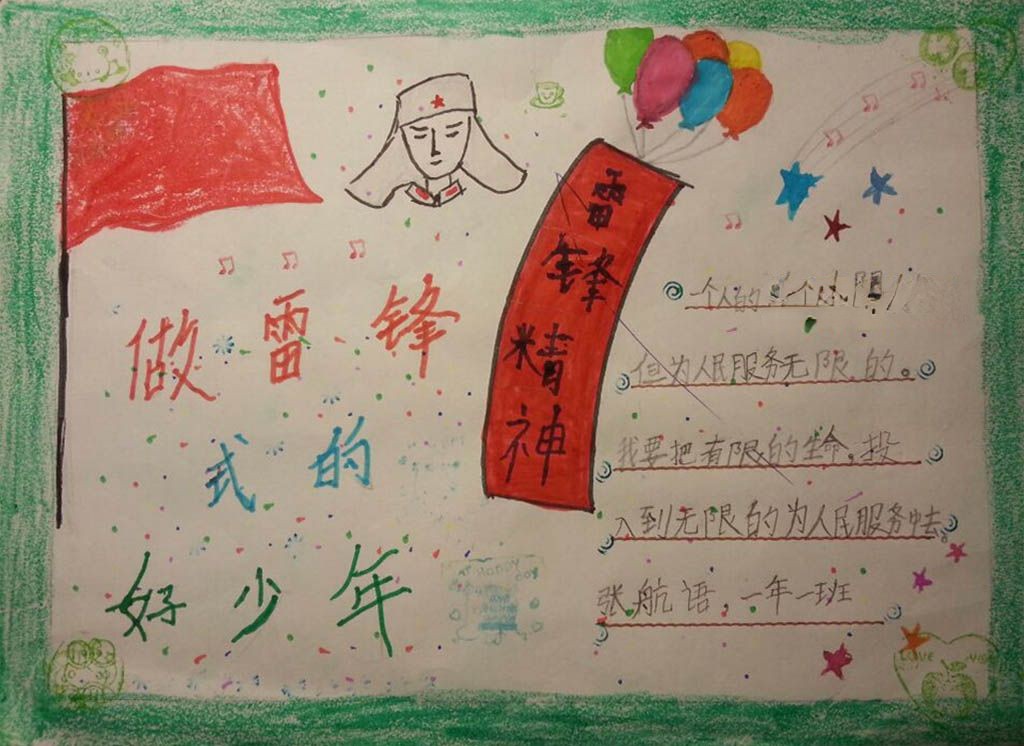 做雷锋
式的
好少年
雷锋精神
一个人的
但为人民服务无限的。
我要把有限的生命,投
入到无限的为人民服务中去。
张航语,一年一班
LOVE